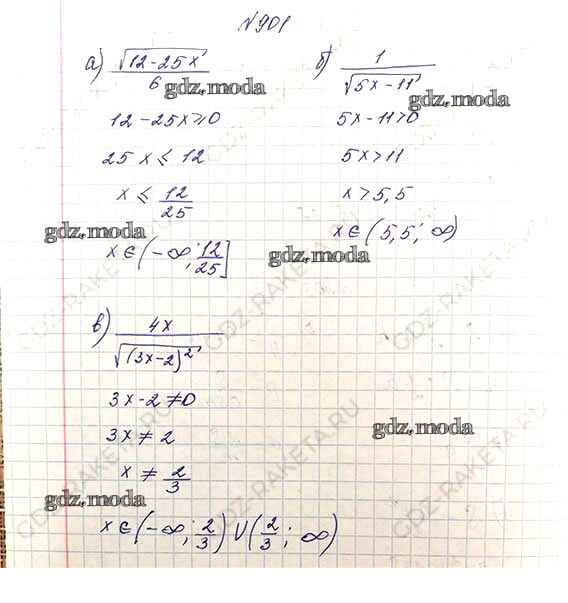 №901
а) √(12-25x) / 6
12-25x⩾0
25x ⩽ 12
x ⩽ 12/25
x∈(-∞; 12/25]
б) 1 / √(5x-11)
5x-11>0
5x>11
x>5,5
x∈(5,5; ∞)
в) 4x / √((3x-2)²)
3x-2≠0
3x≠2
x ≠ 2/3
x∈(-∞; 2/3) U (2/3; ∞)
gdz.moda
gdz.moda
gdz.moda
gdz.moda
gdz.moda
gdz.moda
GDZ-RAKETA.RU
GDZ-RAKETA.RU
GDZ-RAKETA.RU
GDZ-RAKETA.RU
GDZ-RAKETA.RU
GDZ-RAKETA.RU